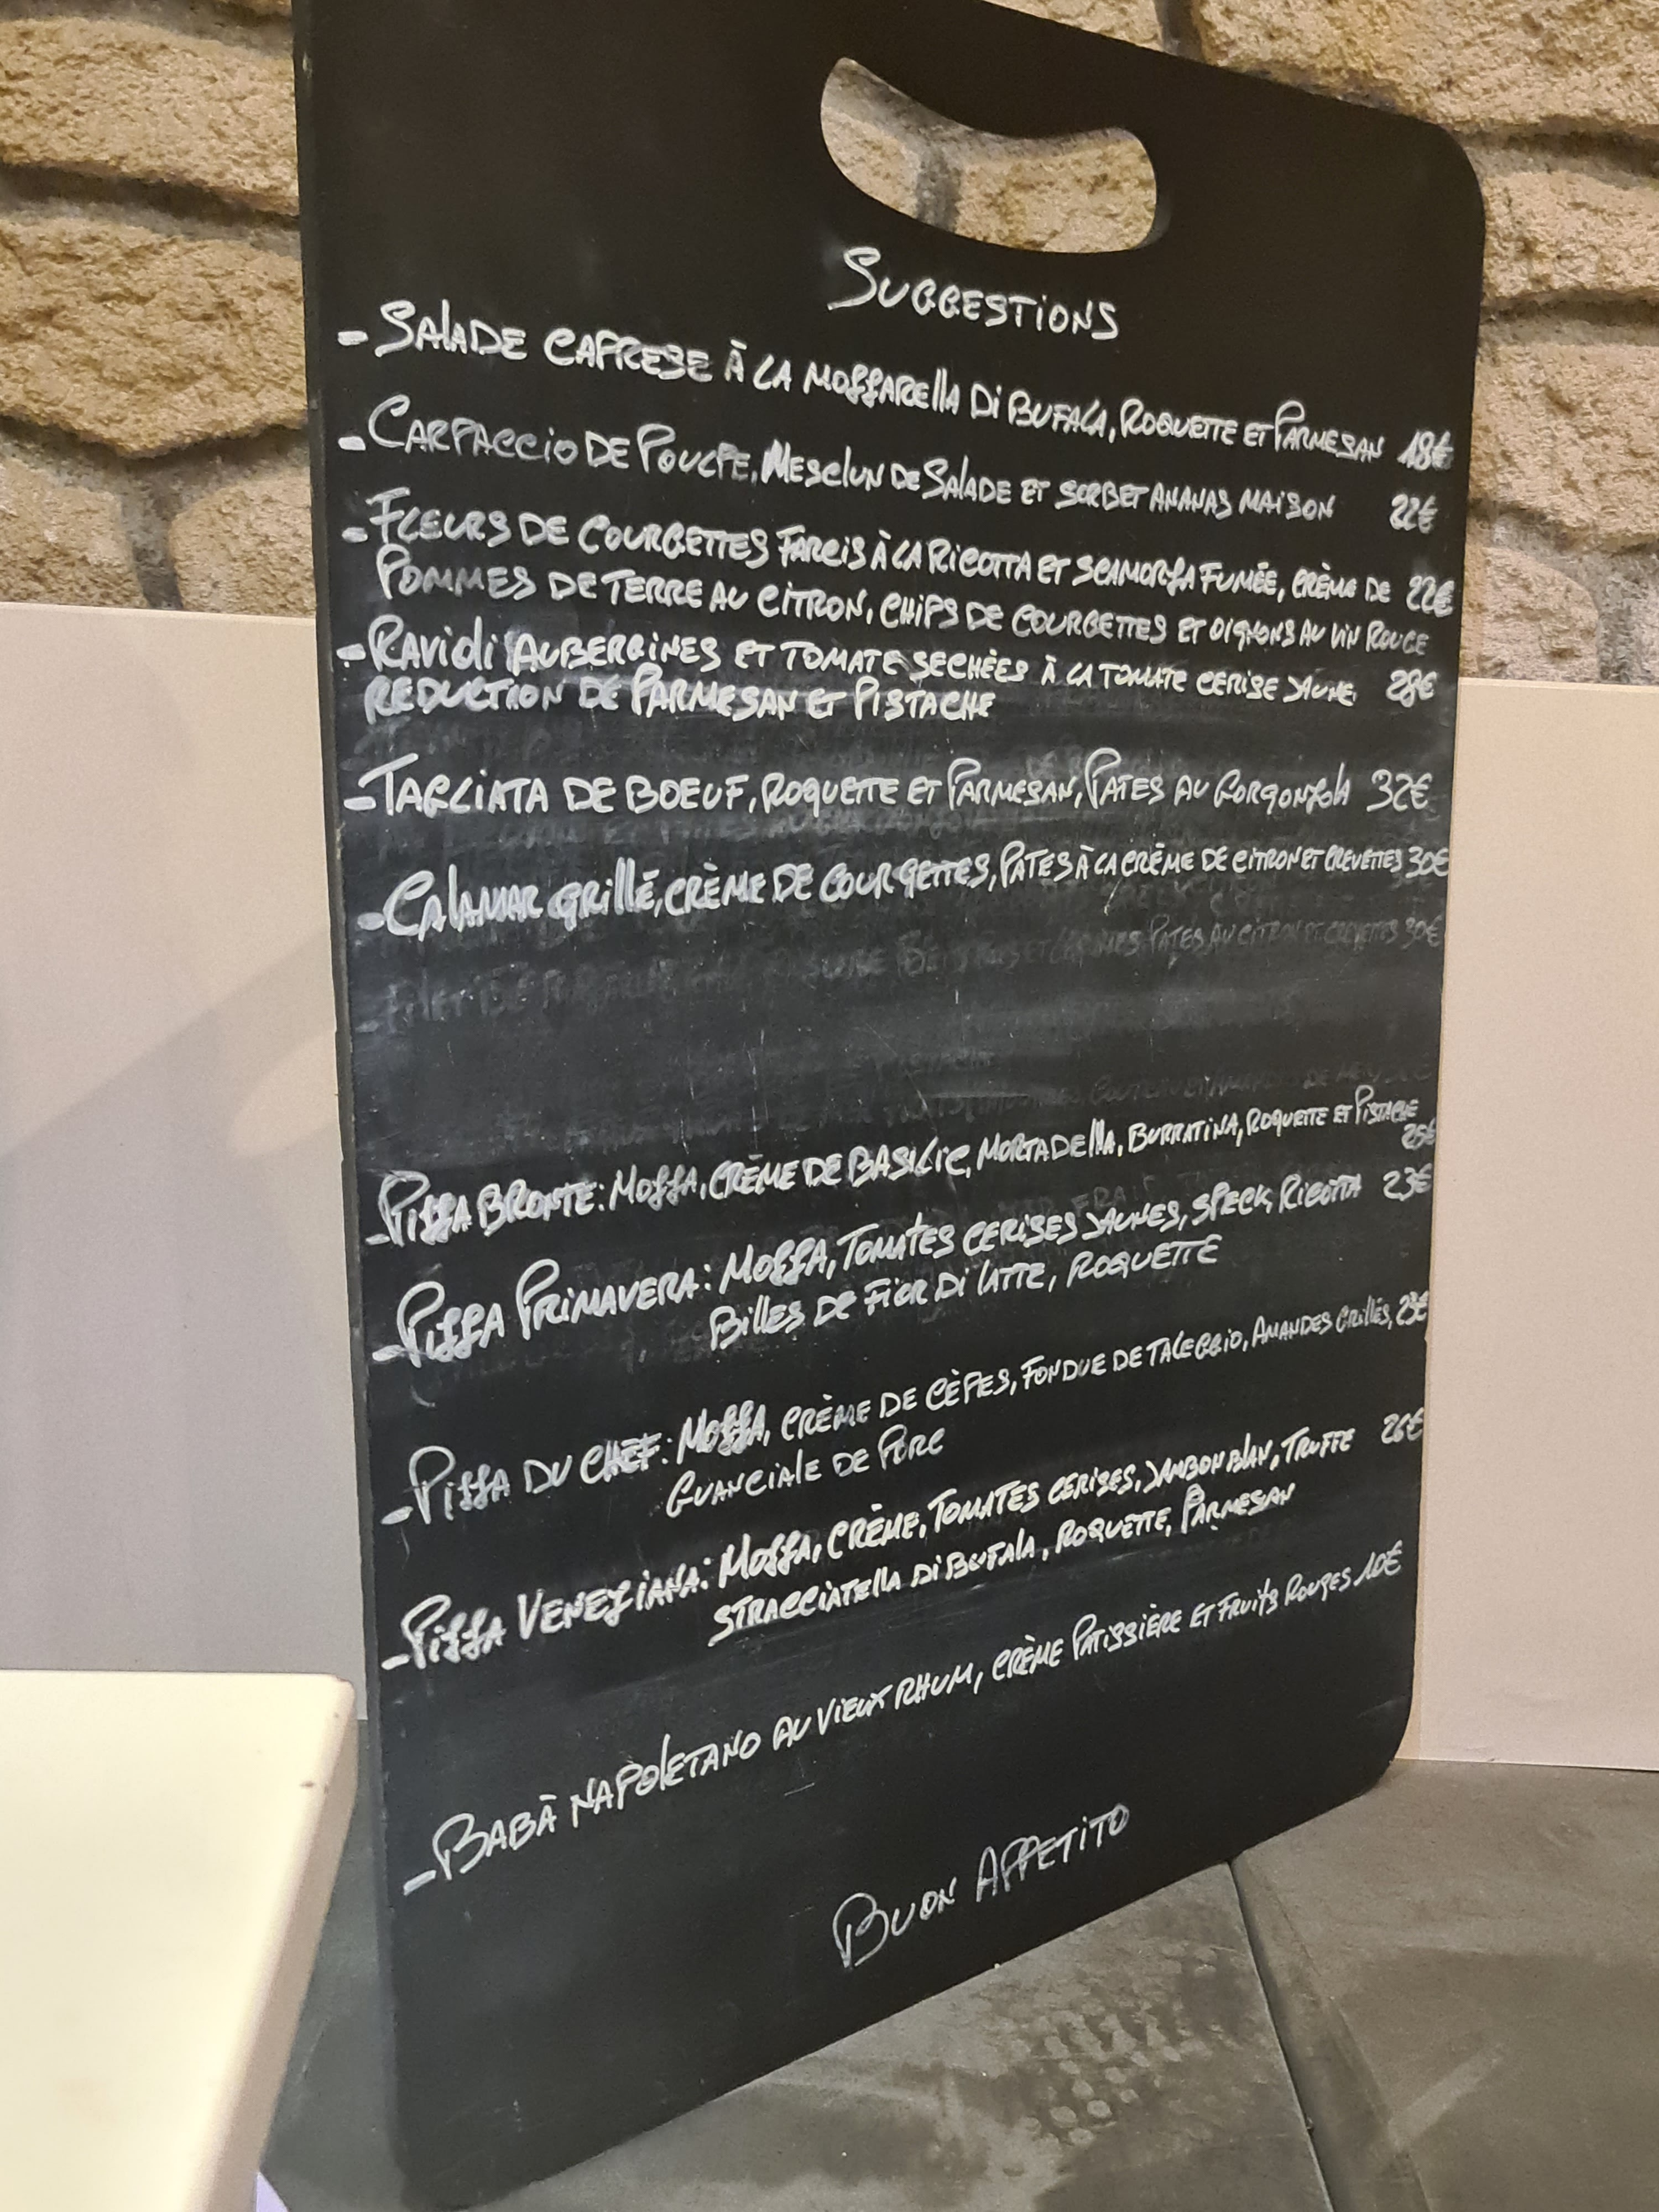 SUGGESTIONS
- SALADE CAPRESE À LA MOZZARELLA DI BUFALA, ROQUETTE ET PARMESAN 18€
- CARPACCIO DE POULPE, MESCLUN DE SALADE ET SORBET ANANAS MAISON 22€
- FLEURS DE COURGETTES FARCIS À LA RICOTTA ET SCAMORZA FUMÉE, CRÈME DE 22€
POMMES DE TERRE AU CITRON, CHIPS DE COURGETTES ET OIGNONS AU VIN ROUGE
- RAVIOLI AUBERGINES ET TOMATE SECHÈES À LA TOMATE CERISE JAUNE, 28€
REDUCTION DE PARMESAN ET PISTACHE
- TAGLIATA DE BOEUF, ROQUETTE ET PARMESAN, PATES AU GORGONZOLA 32€
- CALAMAR GRILLÉ, CRÈME DE COURGETTES, PATES À LA CRÈME DE CITRON ET CREVETTES 30€
PATES AU CITRON ET CREVETTES 30€
- PIZZA BRONTE: MOZZA, CRÈME DE BASILIC, MORTADELLA, BURRATINA, ROQUETTE ET PISTACHE
25€
- PIZZA PRIMAVERA: MOZZA, TOMATES CERISES JAUNES, SPECK, RICOTTA 23€
BILLES DE FIOR DI LATTE, ROQUETTE
- PIZZA DU CHEF: MOZZA, CRÈME DE CÈPES, FONDUE DE TALEGGIO, AMANDES GRILLÉS, 23€
GUANCIALE DE PORC
- PIZZA VENEZIANA: MOZZA, CRÈME, TOMATES CERISES, JAMBON BLAN, TRUFFE 26€
STRACCIATELLA DI BUFALA, ROQUETTE, PARMESAN
- BABÀ NAPOLETANO AU VIEUX RHUM, CRÈME PATISSIÈRE ET FRUITS ROUGES 10€
BUON APPETITO